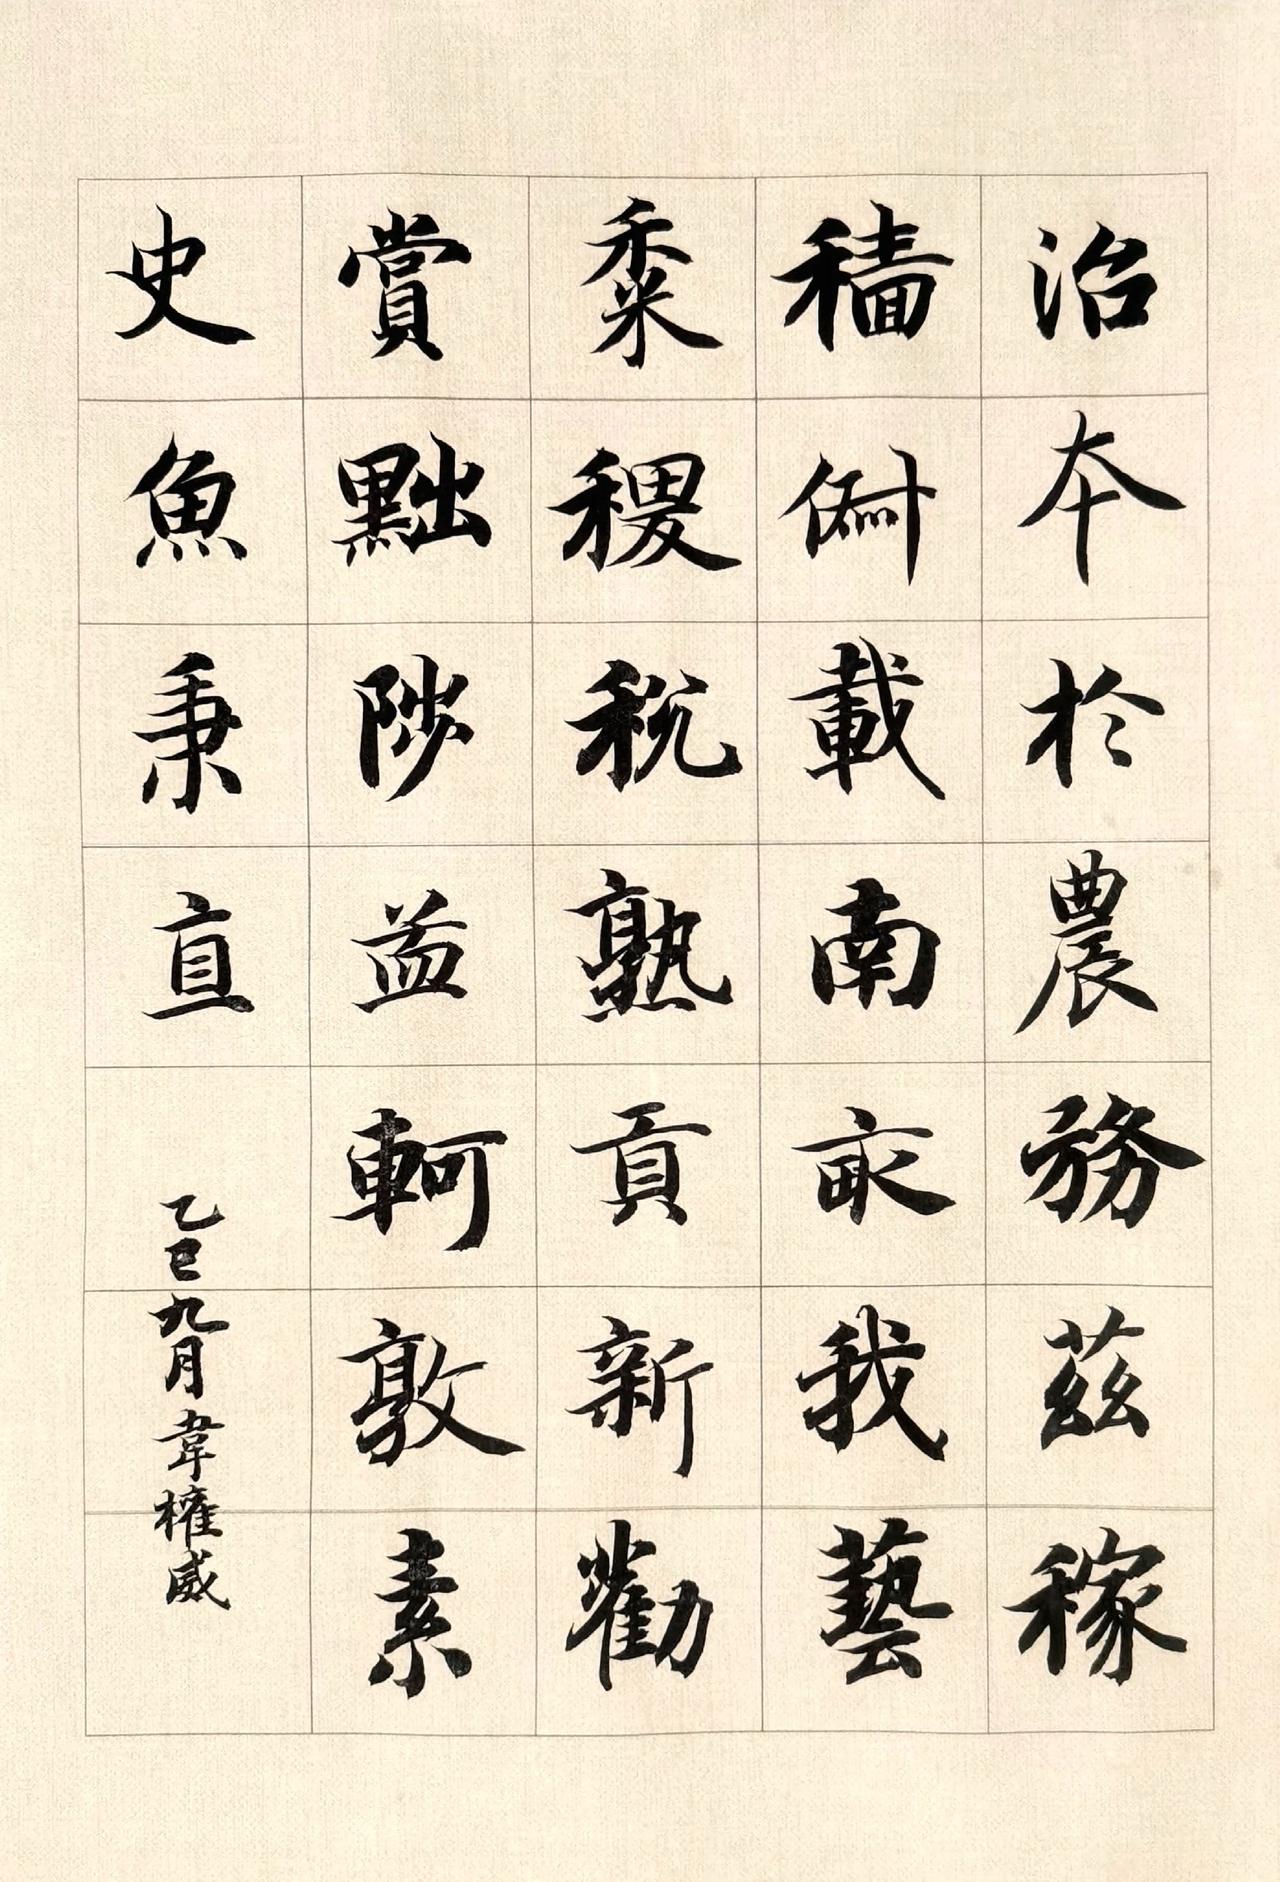 治本於農務茲稼
穡俶載南畝我藝
黍稷稅熟貢新勸
賞黜陟孟軻敦素
史魚秉直
乙巳九月韋權威